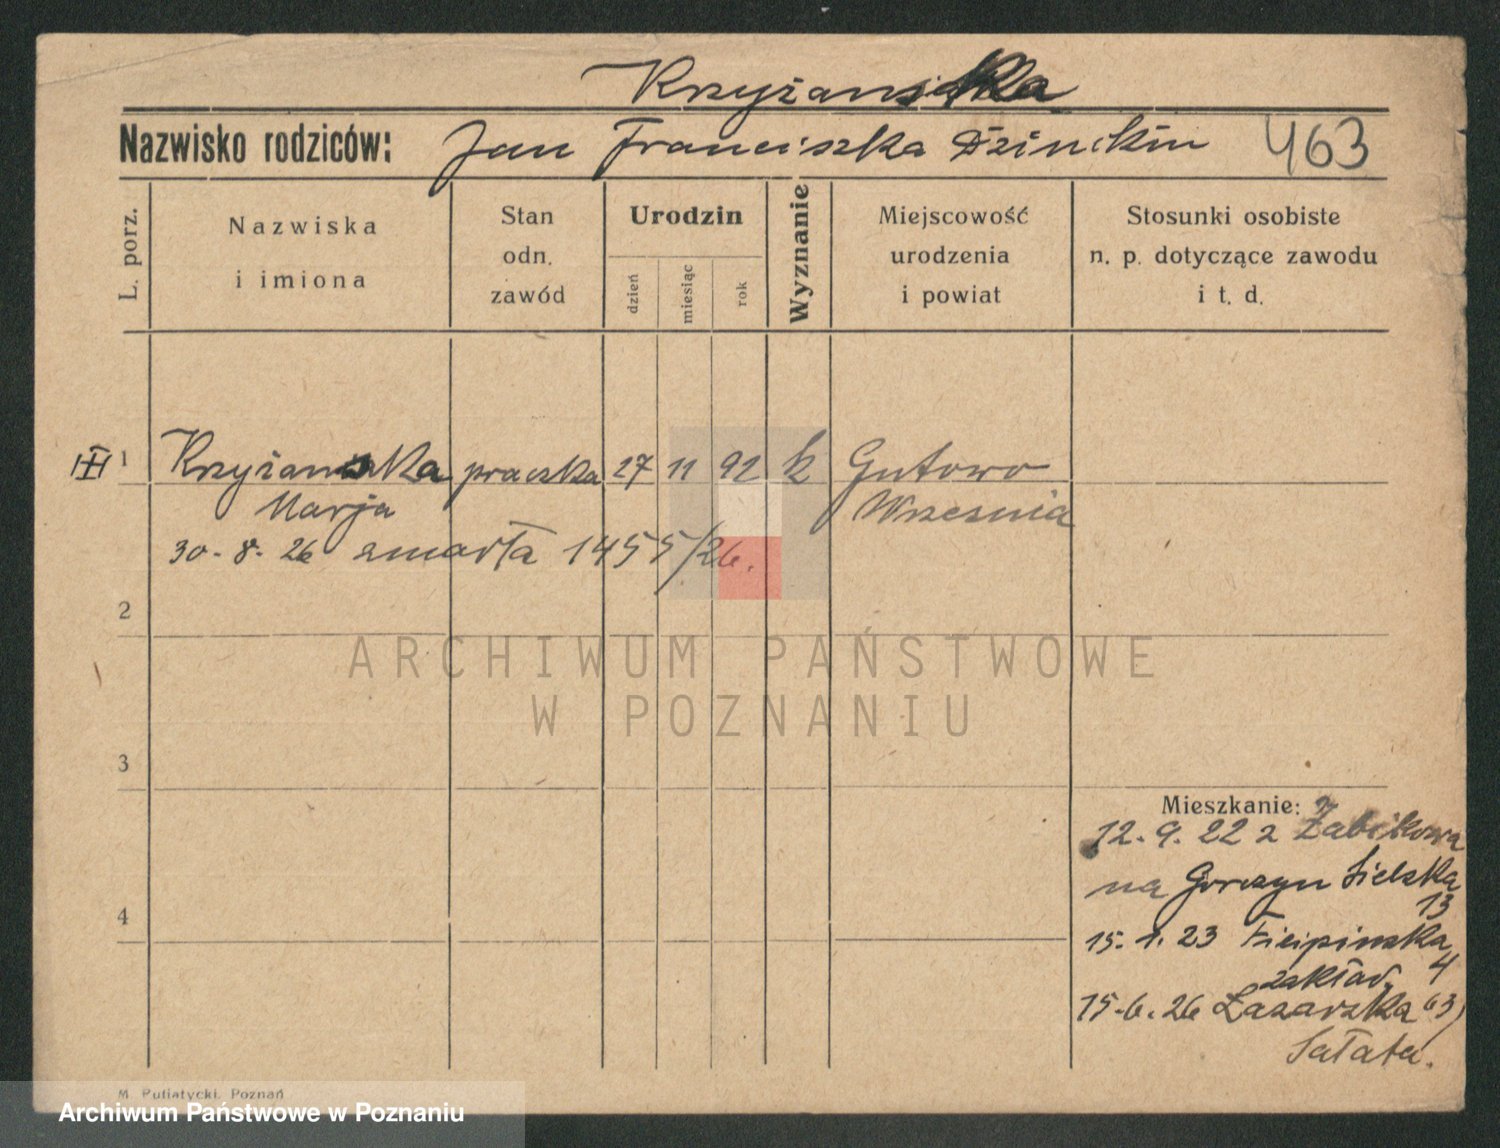 Krzyżańska
Nazwisko rodziców: Jan Franciszka 463
L. porz.
Nazwiska
i imiona
Stan
odn.
zawód
Urodzin
dzień
miesiąc
rok
Wyznanie
Miejscowość
urodzenia
i powiat
Stosunki osobiste
n. p. dotyczące zawodu
i t. d.
1 Krzyżańska praczka 27 11 92 k Gutowo
Marja Wrzesnia
30-8-26 zmarła 1455/26.
2
3
4
Mieszkanie:
12.9.22 z Żabikowa
na Gorczyn Sielska
13
15.1.23
zakład. 4
15.6.26 Łazarska 63)
Sałata.
ARCHIWUM PAŃSTWOWE
W POZNANIU
M. Putiatycki, Poznań
Archiwum Państwowe w Poznaniu